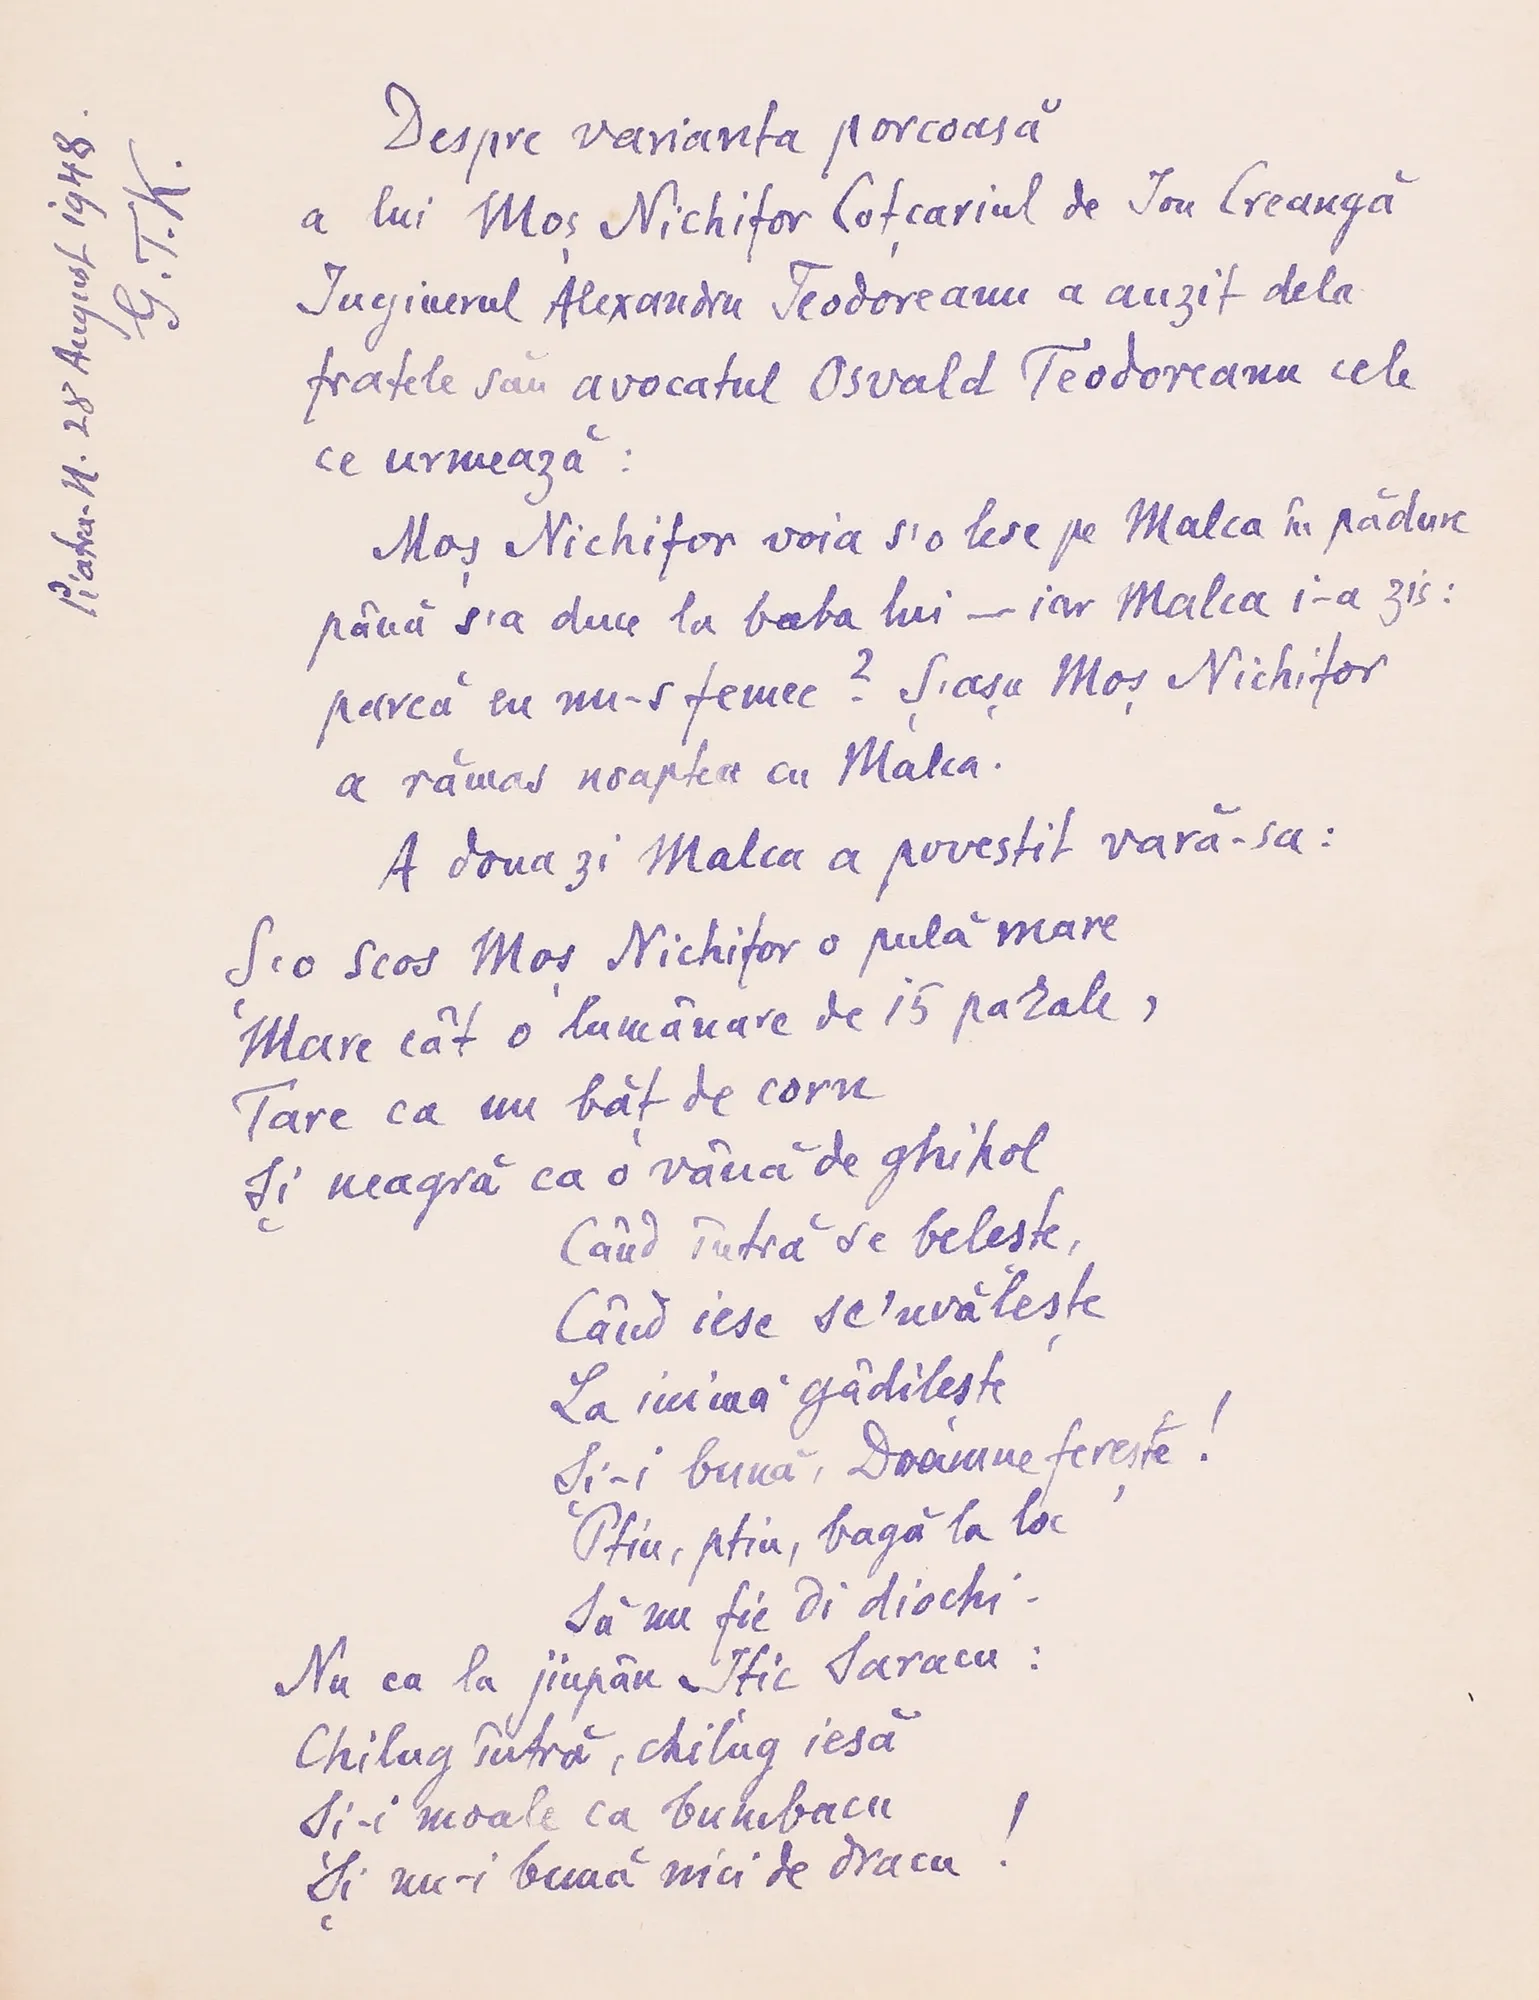 Piatra-N. 28 August 1948.
G.T.K.
Despre varianta porcoasă
a lui Moș Nichifor Coțcariul de Ion Creangă
Inginerul Alexandru Teodoreanu a auzit dela
fratele său avocatul Osvald Teodoreanu cele
ce urmează:
Moș Nichifor voia s'o lese pe Malca în pădure
până s'a duce la baba lui — iar Malca i-a zis:
parcă eu nu-s femee? Ș'așa Moș Nichifor
a rămas noaptea cu Malca.
A doua zi Malca a povestit vară-sa:
Ș'o scos Moș Nichifor o pulă mare
Mare cât o lumânare de 15 parale,
Tare ca un băț de corn
Și neagră ca o vână de ghihol
Când întră se belește,
Când iese se'nvălește
La inimă gâdilește
Și-i bună, Doamne ferește!
Ptiu, ptiu, bagă la loc
Să nu fie di diochi -
Nu ca la jiupân Ițic Saracu:
Chilug întră, chilug iesă
Și-i moale ca bumbacu
Și nu-i bună nici de dracu!